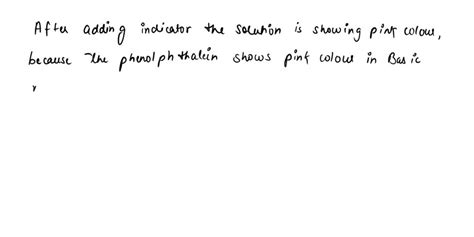 After adding indicator the solution is showing pink colour,
because the phenolphthalein shows pink colour in Basic